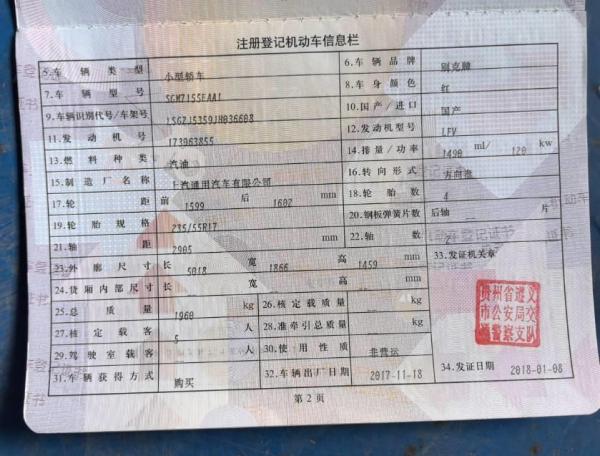 注册登记机动车信息栏
5.车辆类型 小型轿车 6.车辆品牌 别克牌
7.车辆型号 SGM7155EAA1 8.车身颜色 红
9.车辆识别代号/车架号 LSGZJ5359JH036608 10.国产/进口 国产
11.发动机号 173963855 12.发动机型号 LFV
13.燃料种类 汽油 14.排量/功率 1490 ml/ 120 kw
15.制造厂名称 上汽通用汽车有限公司 16.转向形式 方向盘
17.轮距 前 1599 后 1602 mm 18.轮胎数 4
19.轮胎规格 235/55R17 20.钢板弹簧片数 后轴 -- 片
21.轴距 2905 mm 22.轴数 2
23.外廓尺寸 长 5018 宽 1866 高 1459 mm 33.发证机关章
24.货厢内部尺寸 长 宽 高 mm
25.总质量 1960 kg 26.核定载质量 kg
27.核定载客 5 人 28.准牵引总质量 kg
29.驾驶室载客 人 30.使用性质 非营运
贵州省遵义
市公安局交
通警察支队
31.车辆获得方式 购买 32.车辆出厂日期 2017-11-18 34.发证日期 2018-01-08
第2页